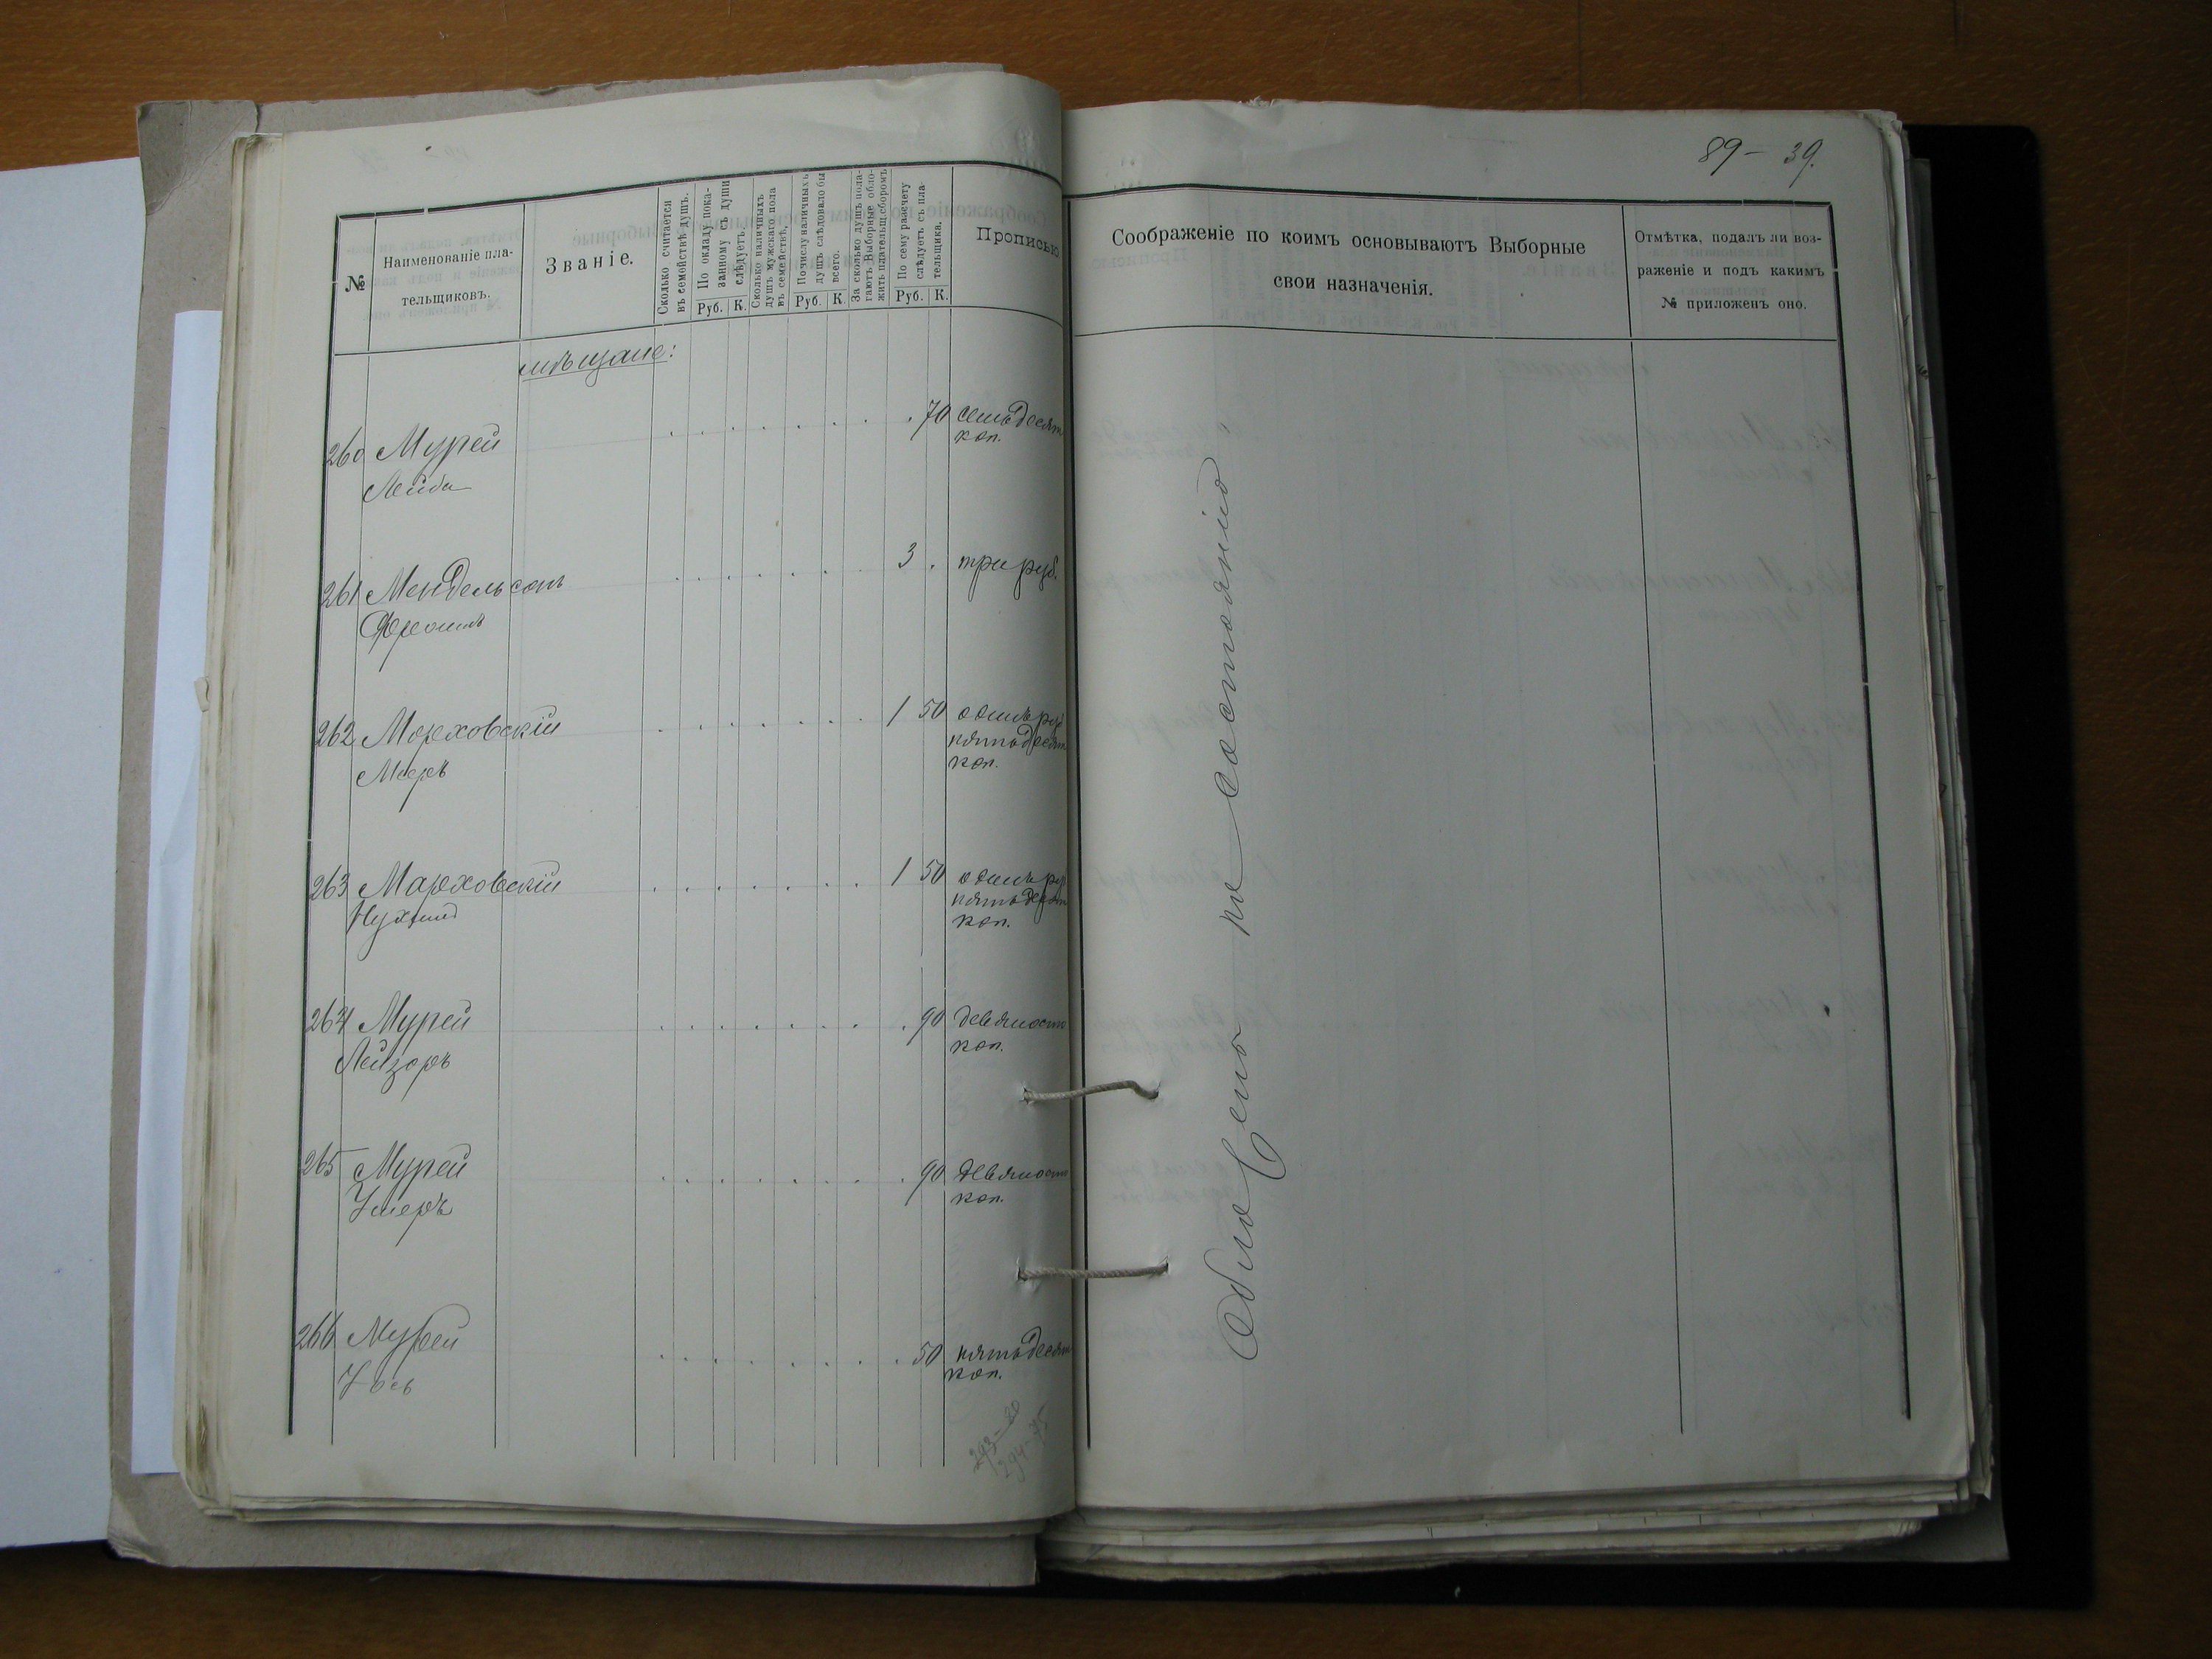 89 – 39.
№
Наименованіе пла-
тельщиковъ.
Званіе.
Сколько считается
въ семействѣ душъ.
По окладу пока-
занному съ души
слѣдуетъ.
Руб. К.
Сколько наличныхъ
душъ мужскаго пола
въ семействѣ.
По числу наличныхъ
душъ слѣдовало бы
всего.
Руб. К.
За сколько душъ пола-
гаютъ Выборные обло-
жить плательщ. сборомъ
По сему разсчету
слѣдуетъ съ пла-
тельщика.
Руб. К.
Прописью
Соображеніе по коимъ основываютъ Выборные
свои назначенія.
Отмѣтка, подалъ ли воз-
раженіе и подъ какимъ
№ приложенъ оно.
мѣщане:
260 Мурей . 70 семьдесят
Лейба коп.
261 Мендельсонъ 3 . три руб.
Фроимъ
262 Морховскій 1 50 одинъ руб
Мееръ пятьдесят
коп.
263 Марховскій 1 50 одинъ ру
Нухимъ пятьдесят
коп.
264 Мурей . 90 девяносто
Лейзоръ коп.
265 Мурей . 90 девяносто
Ушеръ коп.
266 Мурей . 50 пятьдесят
Іось коп.
293 – 80
294 – 75
Обложены по состоянію